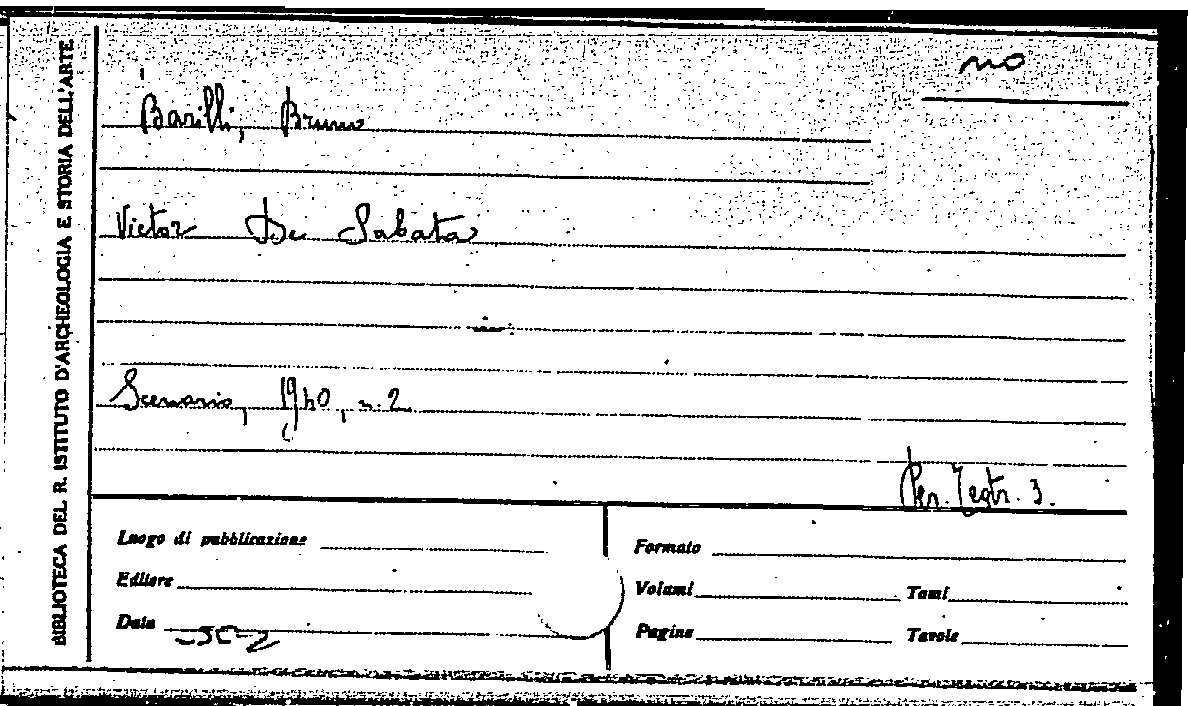 BIBLIOTECA DEL R. ISTITUTO D'ARCHEOLOGIA E STORIA DELL'ARTE
no
Barilli, Bruno
Victor De Sabata
Scenario, 1940, n. 2
Per. Teatr. 3.
Luogo di pubblicazione
Editore
Data
Formato
Volumi Tomi
Pagine Tavole